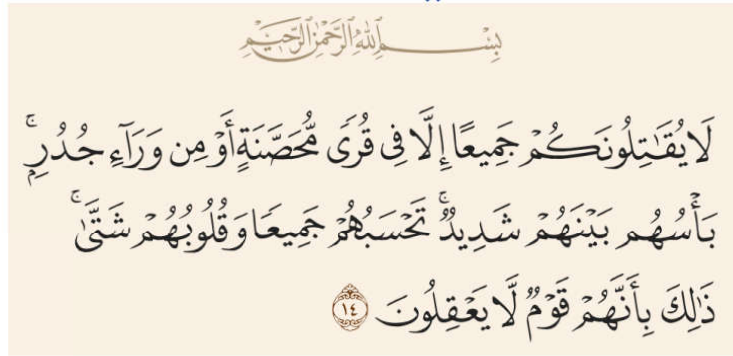 بِسْمِ ٱللَّهِ ٱلرَّحْمَٰنِ ٱلرَّحِيمِ
لَا يُقَٰتِلُونَكُمْ جَمِيعًا إِلَّا فِى قُرًى مُّحَصَّنَةٍ أَوْ مِن وَرَآءِ جُدُرٍۭ ۚ
بَأْسُهُم بَيْنَهُمْ شَدِيدٌ ۚ تَحْسَبُهُمْ جَمِيعًا وَقُلُوبُهُمْ شَتَّىٰ ۚ
ذَٰلِكَ بِأَنَّهُمْ قَوْمٌ لَّا يَعْقِلُونَ ١٤